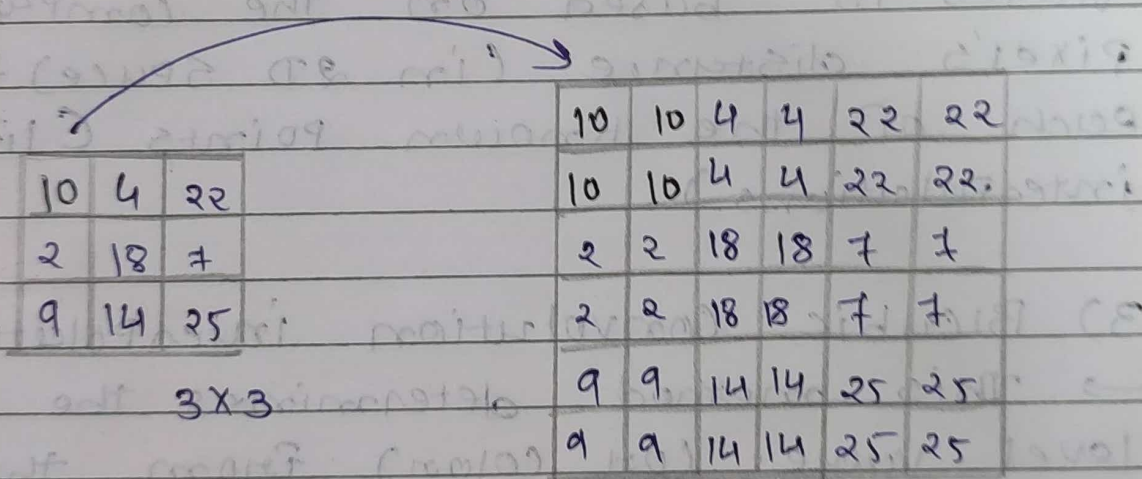 10 4 22
2 18 7
9 14 25
3×3
10 10 4 4 22 22
10 10 4 4 22 22.
2 2 18 18 7 7
2 2 18 18 7 7.
9 9. 14 14 25 25
9 9 14 14 25. 25